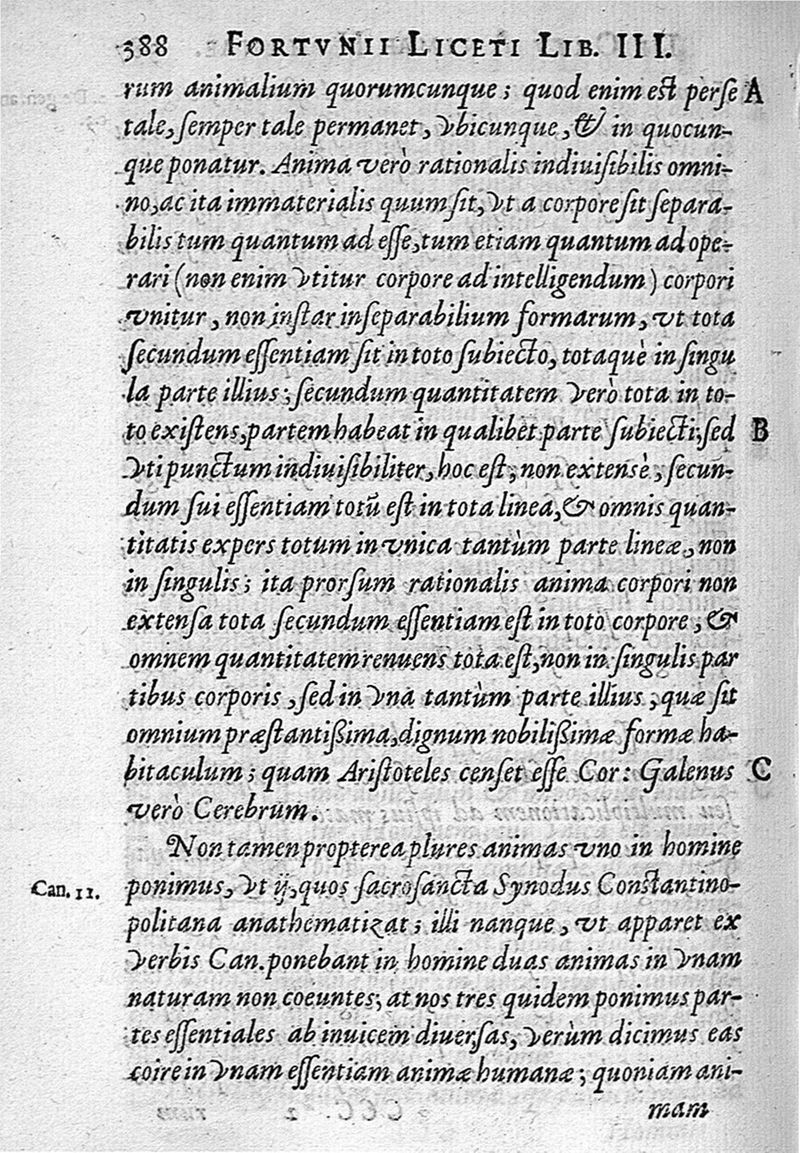 388 FORTVNII LICETI LIB. III.
rum animalium quorumcunque; quod enim est per se A
tale, semper tale permanet, vbicunque, & in quocun-
que ponatur. Anima verò rationalis indiuisibilis omni-
no, ac ita immaterialis quum sit, vt a corpore sit separa-
bilis tum quantum ad esse, tum etiam quantum ad ope-
rari (non enim vtitur corpore ad intelligendum) corpori
vnitur, non instar inseparabilium formarum, vt tota
secundum essentiam sit in toto subiecto, totaquè in singu
la parte illius; secundum quantitatem verò tota in to-
to existens, partem habeat in qualibet parte subiecti; sed B
vti punctum indiuisibiliter, hoc est, non extensè, secun-
dum sui essentiam totũ est in tota linea, & omnis quan-
titatis expers totum in vnica tantùm parte lineæ, non
in singulis; ita prorsum rationalis anima corpori non
extensa tota secundum essentiam est in toto corpore, &
omnem quantitatem renuens tota est, non in singulis par
tibus corporis, sed in vna tantùm parte illius, quæ sit
omnium præstantißima, dignum nobilißimæ formæ ha-
bitaculum; quam Aristoteles censet esse Cor: Galenus C
verò Cerebrum.
Non tamen propterea plures animas vno in homine
Can. 11. ponimus, vt ij, quos sacrosancta Synodus Constantino-
politana anathematizat; illi nanque, vt apparet ex
verbis Can. ponebant in homine duas animas in vnam
naturam non coeuntes; at nos tres quidem ponimus par-
tes essentiales ab inuicem diuersas, verùm dicimus eas
coire in vnam essentiam animæ humanæ; quoniam ani-
mam